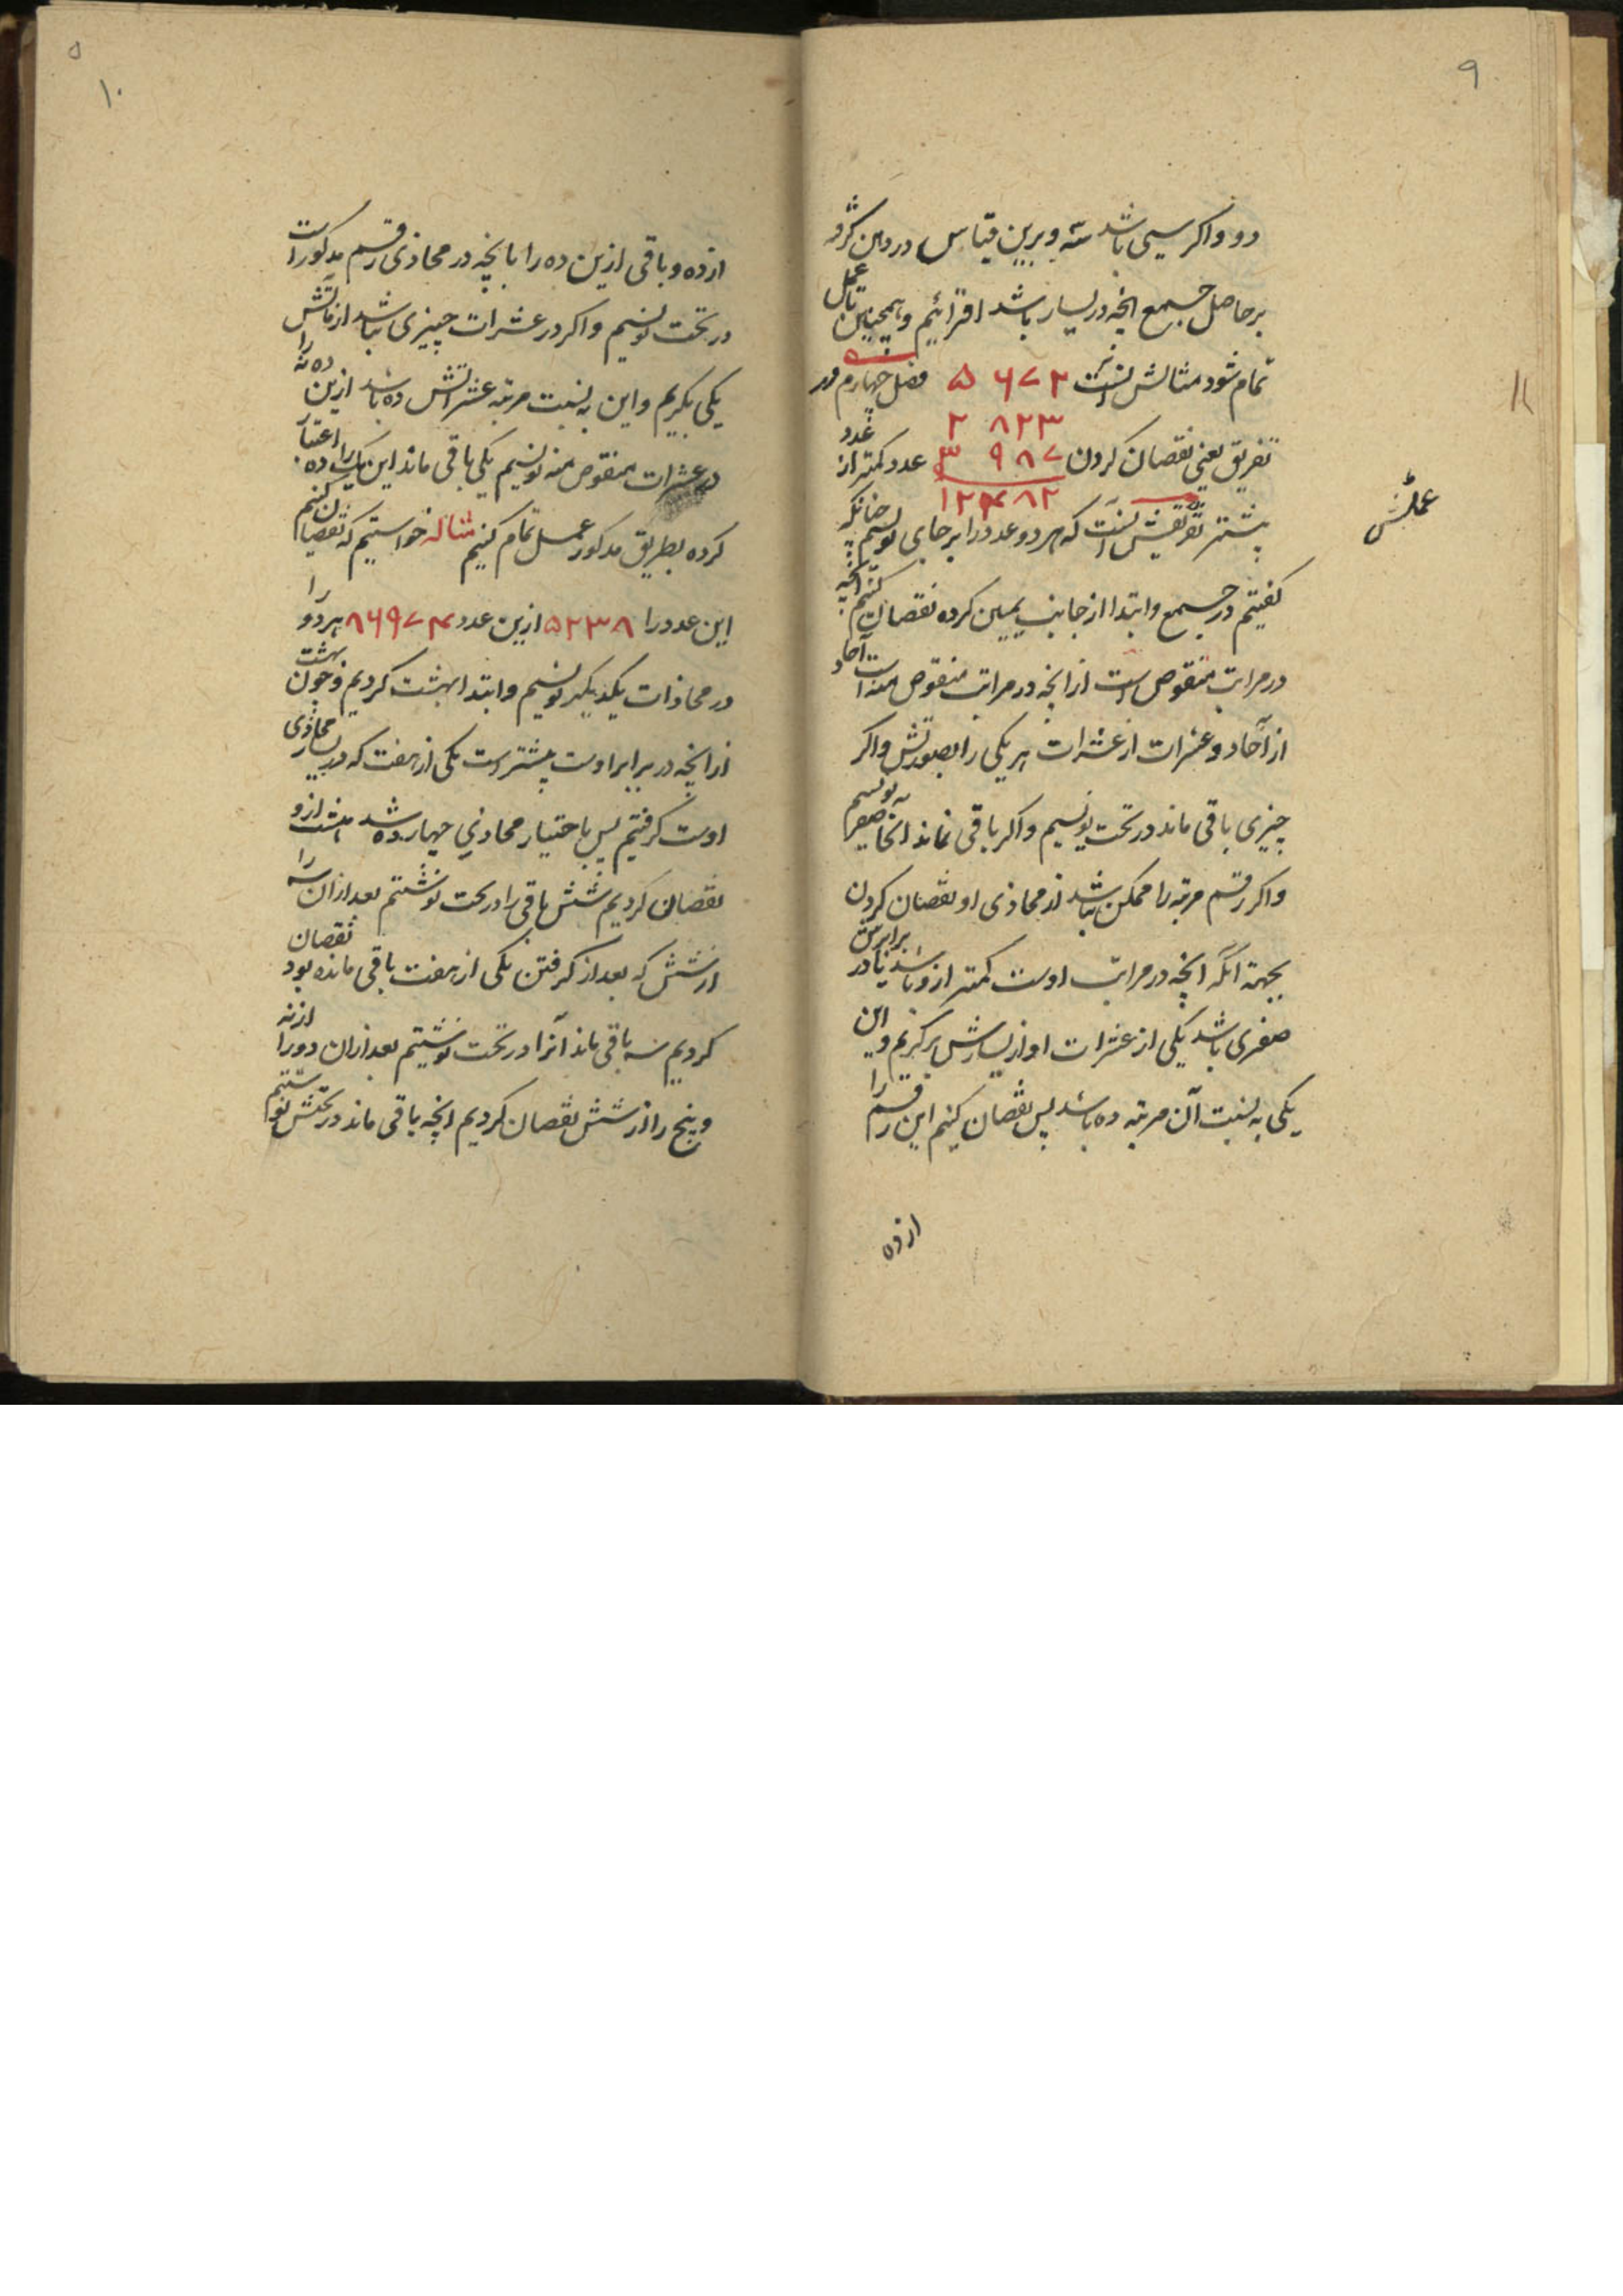 ۹
دو و اکر سی باشد سه و برین قیاس در ذهن کرفته
بر حاصل جمع انچه در یسار باشد افزائیم و همچنین تا عمل
تمام شود مثالش اینست ۵ ۶ ۷ ۲ فصل چهارم در
۲ ۸ ۲ ۳
تفریق یعنی نقصان کردن ۳ ۹ ۸ ۷ عدد کمتر از عدد
۱۲۴۸۲
بیشتر اینست که هر دو عدد را بر جای نویسیم چنانکه
عملش
کفتیم در جمع و ابتدا از جانب یمین کرده نقصان کنیم انچه
در مراتب منقوص است از انچه در مراتب منقوص منه است آحاد
از آحاد و عشرات از عشرات هر یکی را بصورتش و اکر
چیزی باقی ماند در تحت نویسیم و اکر باقی نماند انجا صفر نویسیم
و اکر رقم مرتبه را ممکن نباشد از محاذی او نقصان کردن
بجهة آنکه انچه در مراتب اوست کمتر ازو باشد یا در برابرش
صفری باشد یکی از عشرات او از یسارش بر کیریم و این
یکی به نسبت آن مرتبه ده باشد پس نقصان کنیم این رقم را
از ده
۵
۱۰
از ده و باقی ازین ده را با انچه در محاذی رقم مذکور است
در تحت نویسیم و اکر در عشرات چیزی نباشد از مآتش
یکی بکیریم و این به نسبت مرتبه عشراتش ده باشد ازین ده نه را
در عشرات منقوص منه نویسیم یکی باقی ماند این یک را ده اعتبار
کرده بطریق مذکور عمل تمام کنیم مثاله خواستیم که نقصان کنیم
این عدد را ۵۲۳۸ ازین عدد ۸۶۹۷۴ هر دو را
در محاذات یکدیکر نویسیم و ابتدا بهشت کردیم و چون هشت
از انچه در برابر اوست بیشتر است یکی از هفت که در یسار محاذی
اوست کرفتیم پس باختیار محاذی چهارده شد هشت ازو
نقصان کردیم شش باقی را در تحت نوشتیم بعد از ان سه را
از شش که بعد از کرفتن یکی از هفت باقی مانده بود نقصان
کردیم سه باقی ماند آنرا در تحت نوشتیم بعد از ان دو را از نه
و پنج را از شش نقصان کردیم انچه باقی ماند در تحتش نوشتیم